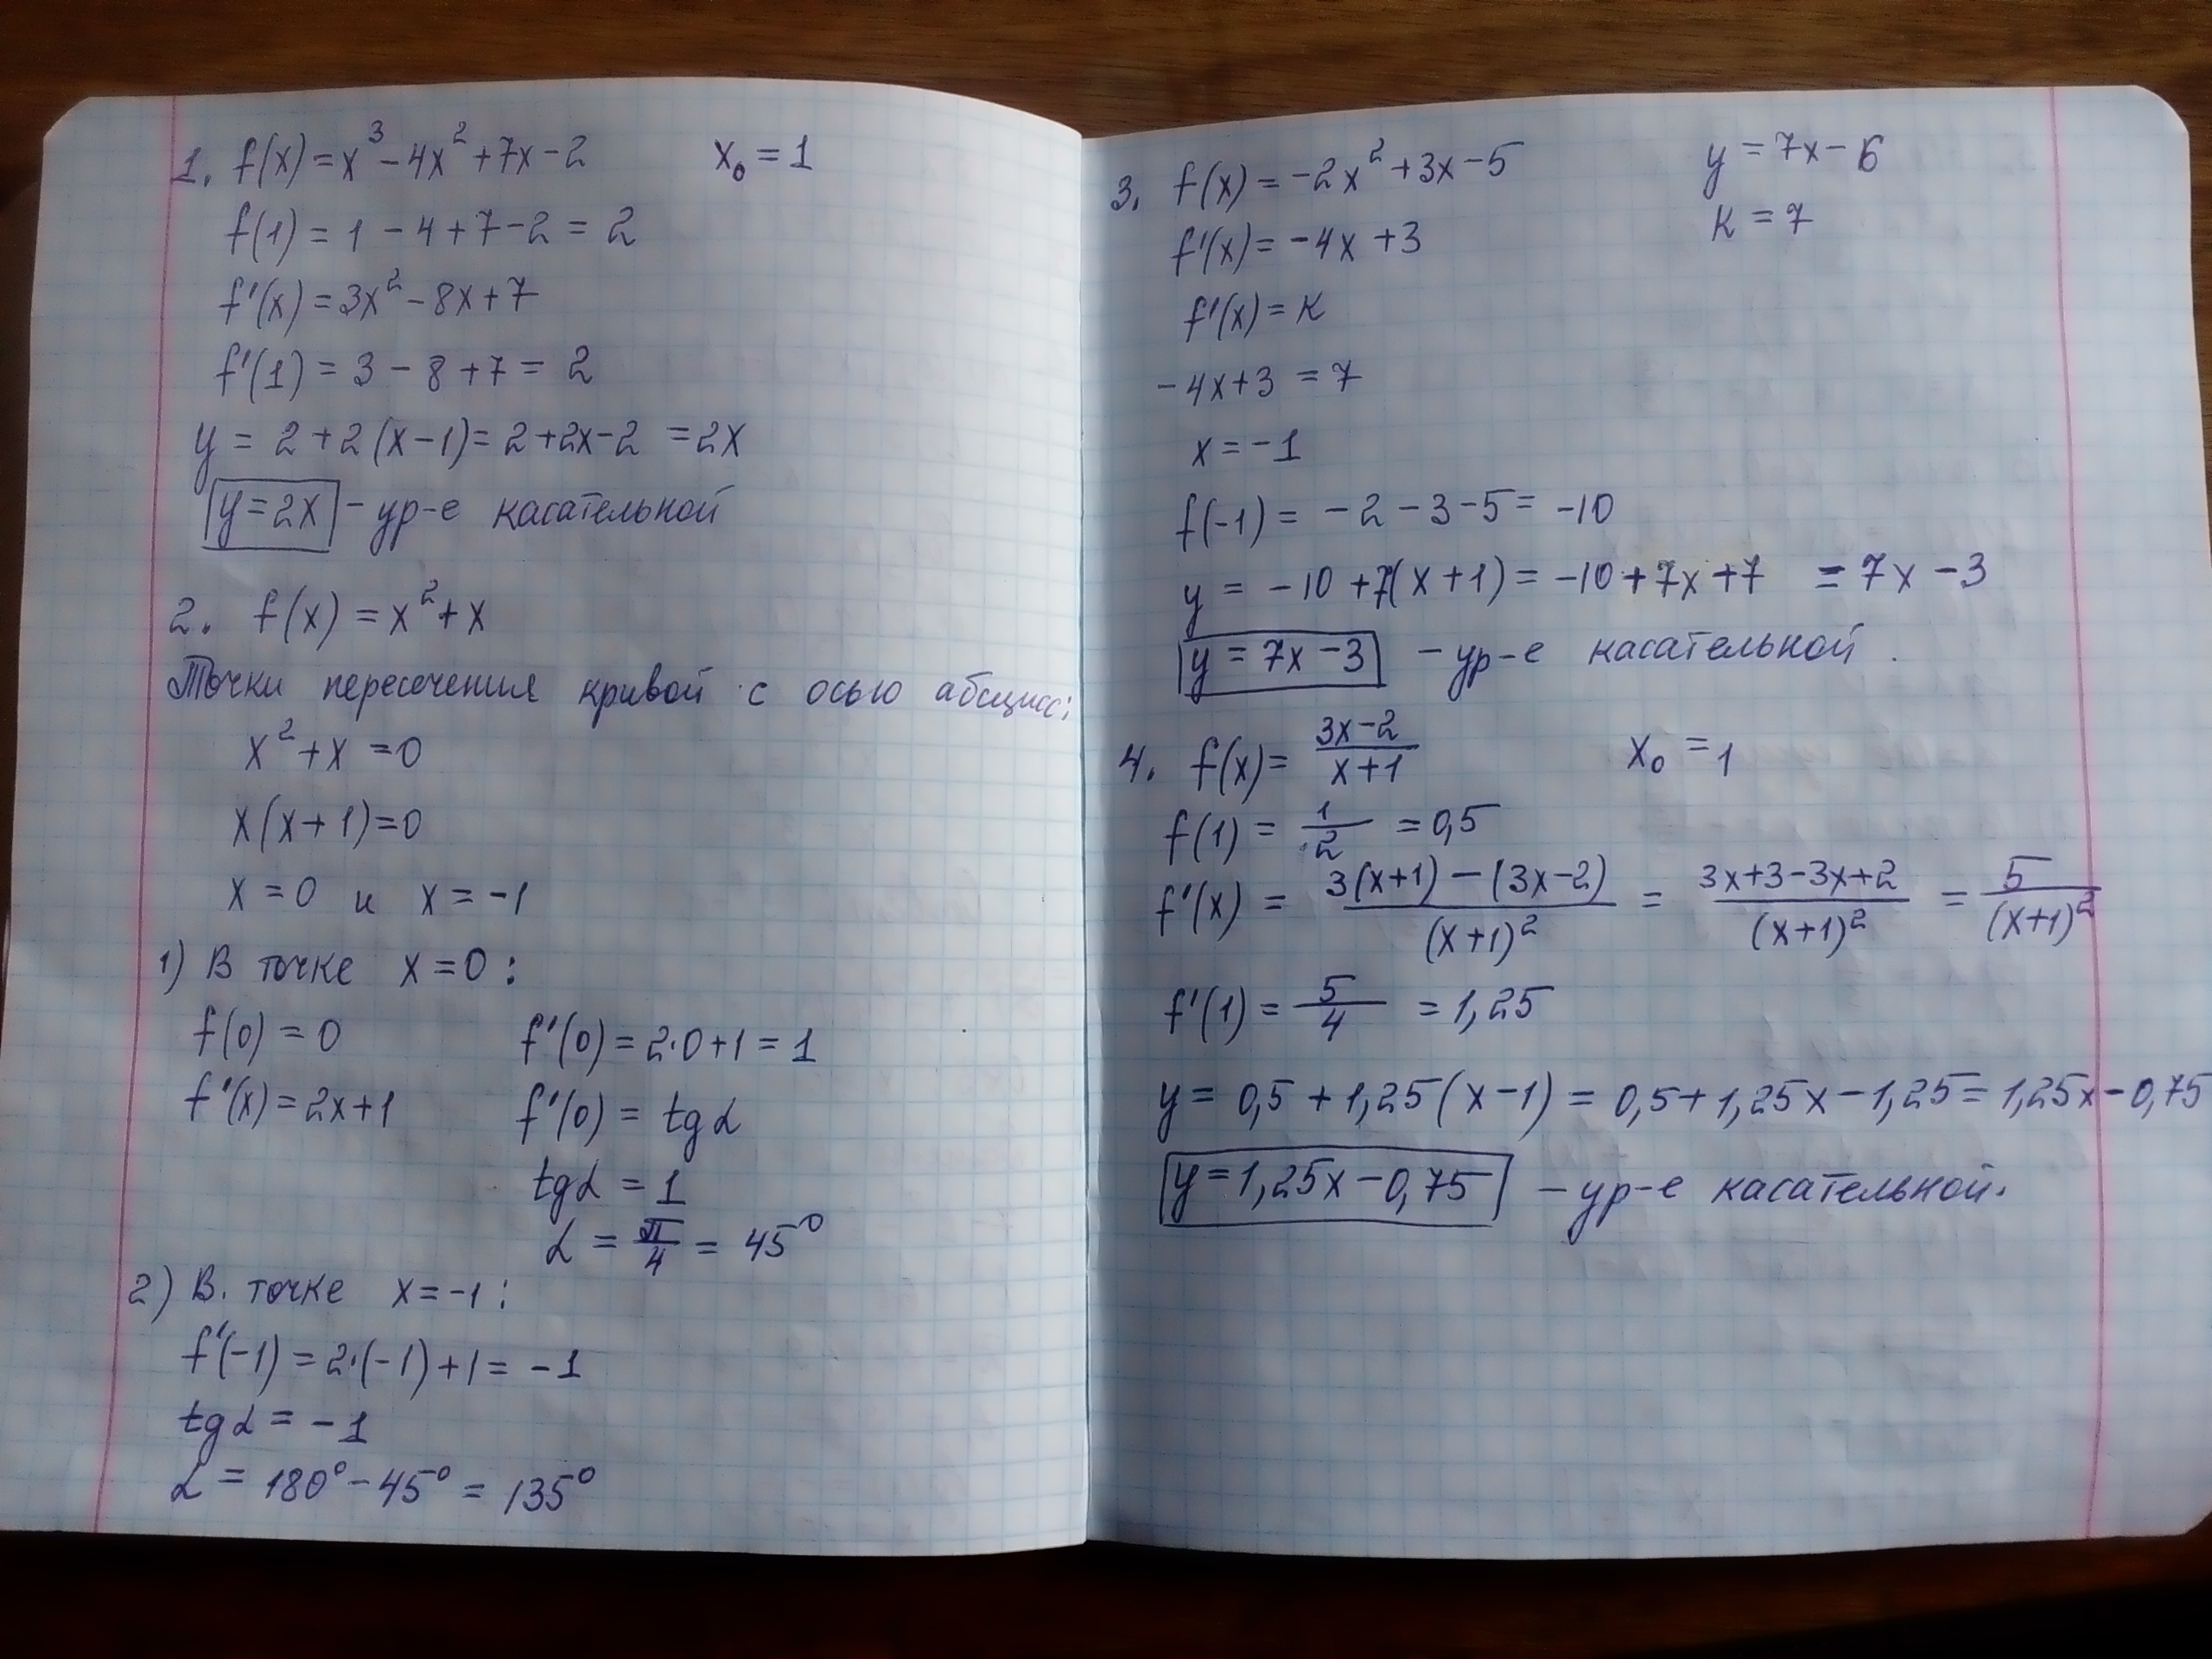 1. f(x) = x³ - 4x² + 7x - 2 x₀ = 1
f(1) = 1 - 4 + 7 - 2 = 2
f'(x) = 3x² - 8x + 7
f'(1) = 3 - 8 + 7 = 2
y = 2 + 2(x-1) = 2 + 2x - 2 = 2x
y = 2x - ур-е касательной
2. f(x) = x² + x
Точки пересечения кривой с осью абсцисс:
x² + x = 0
x(x+1) = 0
x = 0 и x = -1
1) В точке x = 0 :
f(0) = 0 f'(0) = 2·0 + 1 = 1
f'(x) = 2x+1 f'(0) = tg α
tg α = 1
α = π/4 = 45°
2) В. точке x = -1 :
f'(-1) = 2·(-1) + 1 = -1
tg α = -1
α = 180° - 45° = 135°
3. f(x) = -2x² + 3x - 5 y = 7x - 6
f'(x) = -4x + 3 k = 7
f'(x) = k
-4x + 3 = 7
x = -1
f(-1) = -2 - 3 - 5 = -10
y = -10 + 7(x+1) = -10 + 7x + 7 = 7x - 3
y = 7x - 3 - ур-е касательной.
4. f(x) = (3x-2)/(x+1) x₀ = 1
f(1) = 1/2 = 0,5
f'(x) = (3(x+1) - (3x-2))/(x+1)² = (3x+3-3x+2)/(x+1)² = 5/(x+1)²
f'(1) = 5/4 = 1,25
y = 0,5 + 1,25(x-1) = 0,5 + 1,25x - 1,25 = 1,25x - 0,75
y = 1,25x - 0,75 - ур-е касательной.